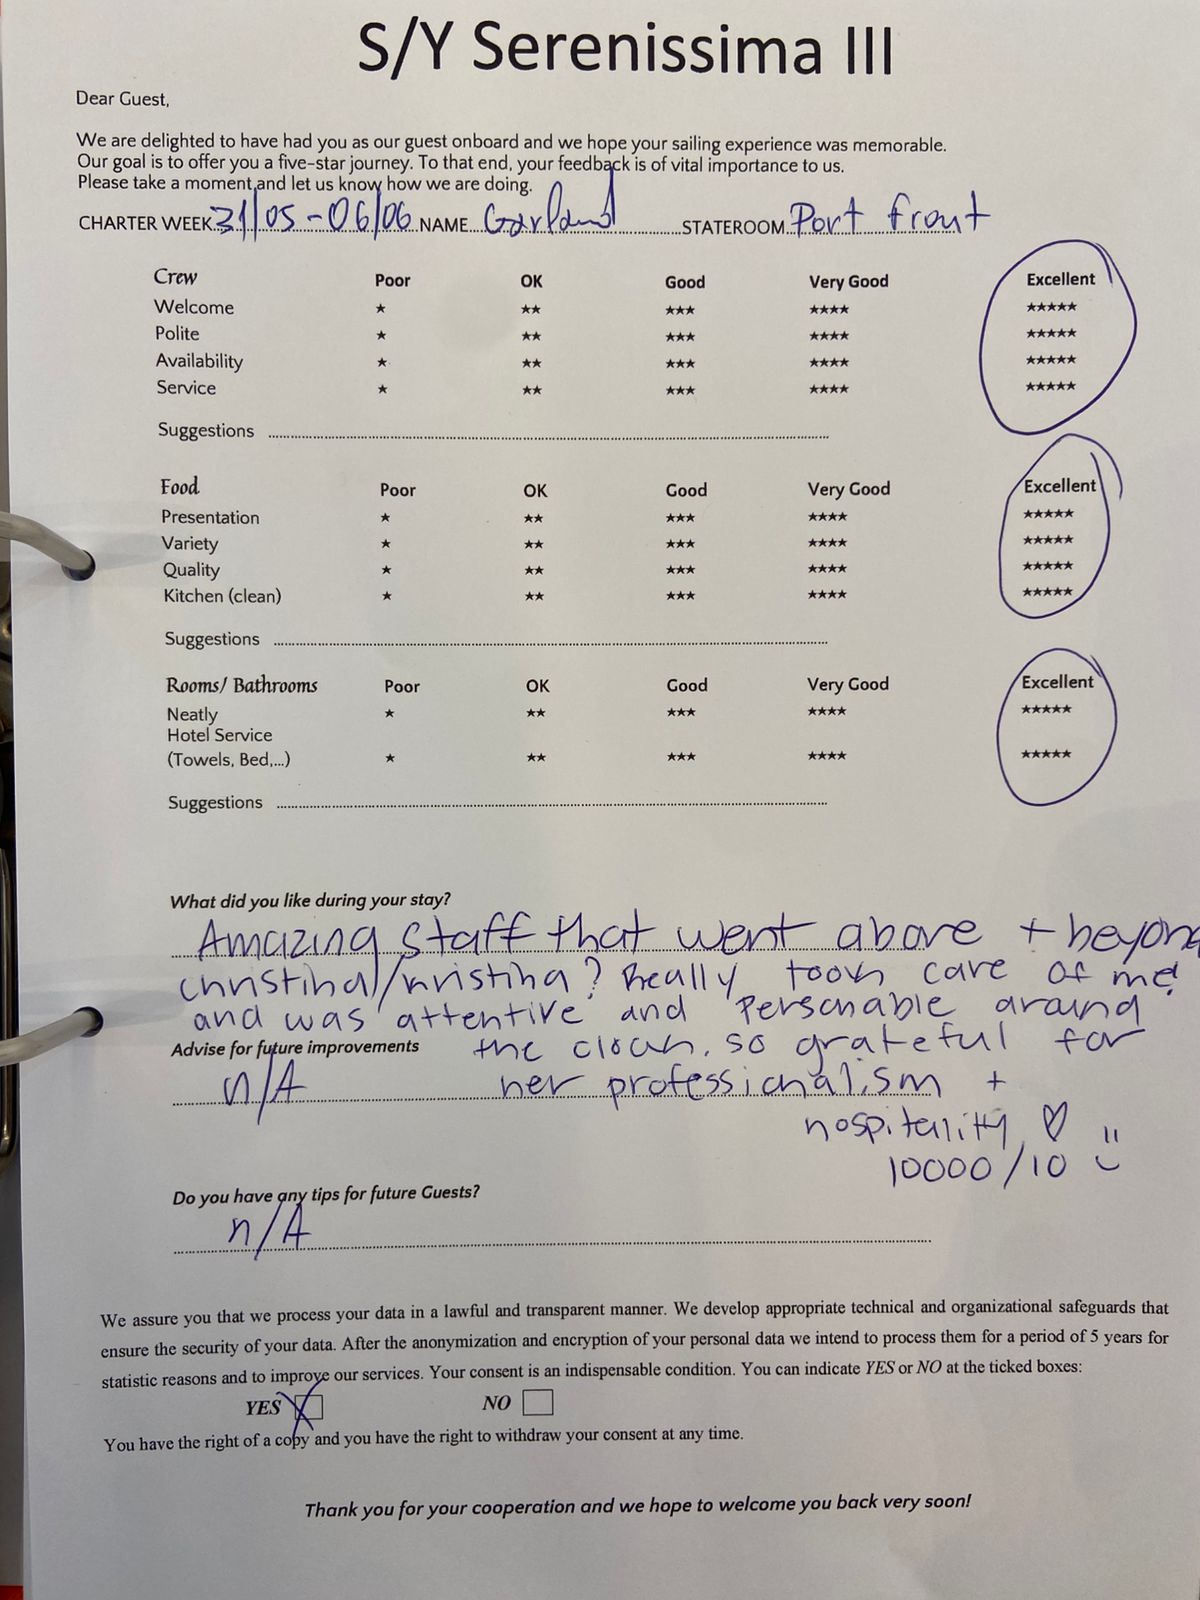 S/Y Serenissima III
Dear Guest,
We are delighted to have had you as our guest onboard and we hope your sailing experience was memorable.
Our goal is to offer you a five-star journey. To that end, your feedback is of vital importance to us.
Please take a moment and let us know how we are doing.
CHARTER WEEK 31/05-06/06 NAME Garland STATEROOM Port front
Crew Poor OK Good Very Good Excellent
Welcome ★ ★★ ★★★ ★★★★ ★★★★★
Polite ★ ★★ ★★★ ★★★★ ★★★★★
Availability ★ ★★ ★★★ ★★★★ ★★★★★
Service ★ ★★ ★★★ ★★★★ ★★★★★
Suggestions
Food Poor OK Good Very Good Excellent
Presentation ★ ★★ ★★★ ★★★★ ★★★★★
Variety ★ ★★ ★★★ ★★★★ ★★★★★
Quality ★ ★★ ★★★ ★★★★ ★★★★★
Kitchen (clean) ★ ★★ ★★★ ★★★★ ★★★★★
Suggestions
Rooms/ Bathrooms Poor OK Good Very Good Excellent
Neatly ★ ★★ ★★★ ★★★★ ★★★★★
Hotel Service
(Towels, Bed,...) ★ ★★ ★★★ ★★★★ ★★★★★
Suggestions
What did you like during your stay?
Amazing staff that went above + beyond
christina/kristina? Really took care of me
and was attentive and personable around
the clock, so grateful for
her professionalism +
hospitality ♡
10000/10 :)
Advise for future improvements
n/A
Do you have any tips for future Guests?
n/A
We assure you that we process your data in a lawful and transparent manner. We develop appropriate technical and organizational safeguards that
ensure the security of your data. After the anonymization and encryption of your personal data we intend to process them for a period of 5 years for
statistic reasons and to improve our services. Your consent is an indispensable condition. You can indicate YES or NO at the ticked boxes:
YES X NO
You have the right of a copy and you have the right to withdraw your consent at any time.
Thank you for your cooperation and we hope to welcome you back very soon!